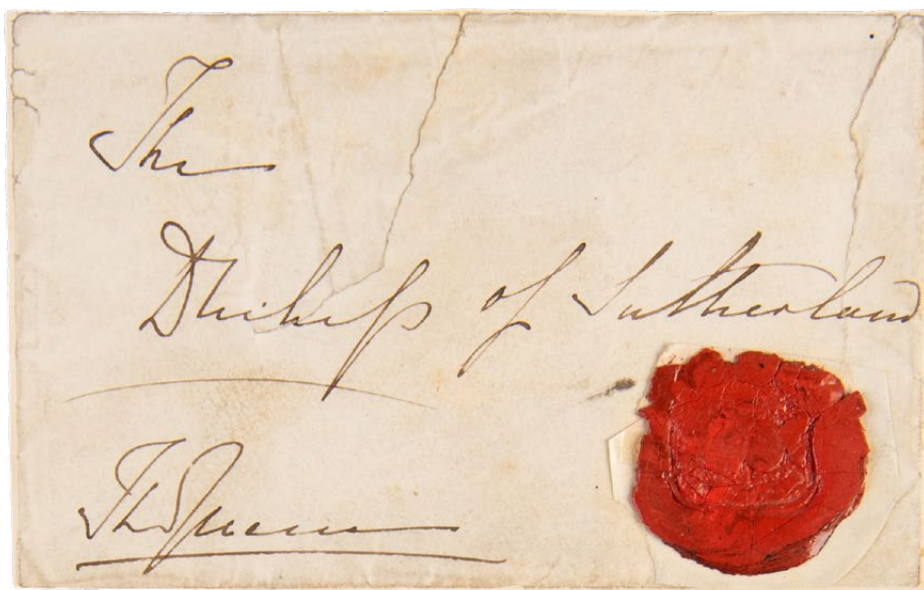 The
Duchess of Sutherland
The Queen